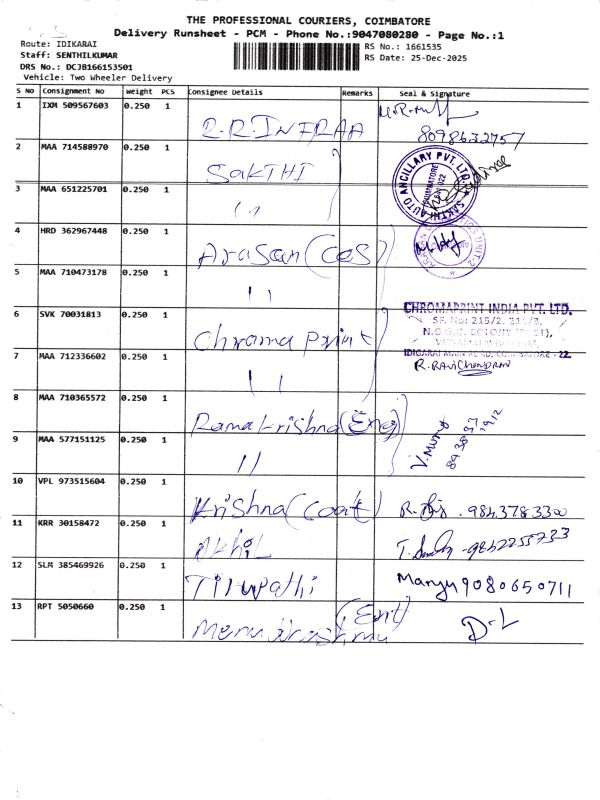 THE PROFESSIONAL COURIERS, COIMBATORE
Delivery Runsheet - PCM - Phone No.:9047080280 - Page No.:1
Route: IDIKARAI
Staff: SENTHILKUMAR
DRS No.: DCJB166153501
Vehicle: Two Wheeler Delivery
RS No.: 1661535
RS Date: 25-Dec-2025
S No Consignment No Weight PCS Consignee Details Remarks Seal & Signature
1 IXM 509567603 0.250 1 R.R.INFRAA
8098632757
2 MAA 714588970 0.250 1 SAKTHI
SAKTHI AUTO ANCILLARY PVT. LTD.
COIMBATORE
3 MAA 651225701 0.250 1 ''
4 HRD 362967448 0.250 1 Arasan (CBS)
5 MAA 710473178 0.250 1 ''
6 SVK 70031813 0.250 1 Chroma Print
CHROMAPRINT INDIA PVT. LTD.
SF. No: 215/2,
IDIGARAI MAIN ROAD, COIMBATORE - 22.
R. RAVICHANDRAN
7 MAA 712336602 0.250 1 ''
8 MAA 710365572 0.250 1 Ramakrishna (Eng)
9 MAA 577151125 0.250 1 ''
10 VPL 973515604 0.250 1 Krishna (Coat) 9843783300
11 KRR 30158472 0.250 1 Akhil 9842255733
12 SLM 385469926 0.250 1 Tirupathi Manju 9080650711
13 RPT 5050660 0.250 1
D-L